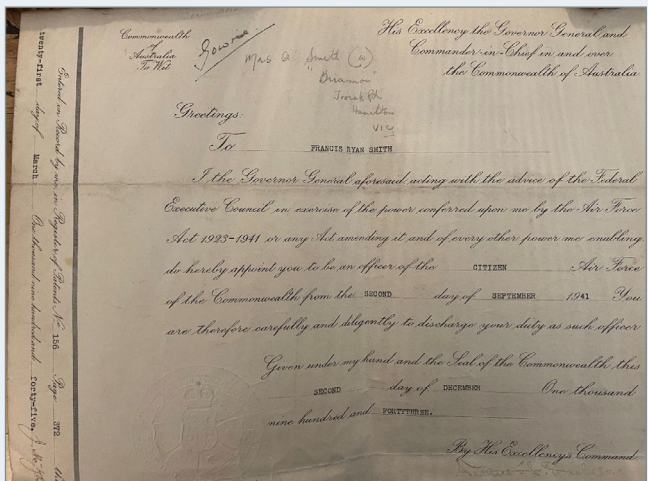 Commonwealth
of
Australia
To Wit
Gowrie
Mrs
Smith
Hamilton
VIC
His Excellency the Governor General and
Commander-in-Chief in and over
the Commonwealth of Australia
Greetings:
To FRANCIS RYAN SMITH
I the Governor General aforesaid acting with the advice of the Federal
Executive Council in exercise of the power conferred upon me by the Air Force
Act 1923-1941 or any Act amending it and of every other power me enabling
do hereby appoint you to be an officer of the CITIZEN Air Force
of the Commonwealth from the SECOND day of SEPTEMBER 1941 You
are therefore carefully and diligently to discharge your duty as such officer
Given under my hand and the Seal of the Commonwealth this
SECOND day of DECEMBER One thousand
nine hundred and FORTYTHREE.
By His Excellency's Command
Entered on Record by me in Register of Patents No 156 Page 372
twenty-first day of March One thousand nine hundred and forty-five.